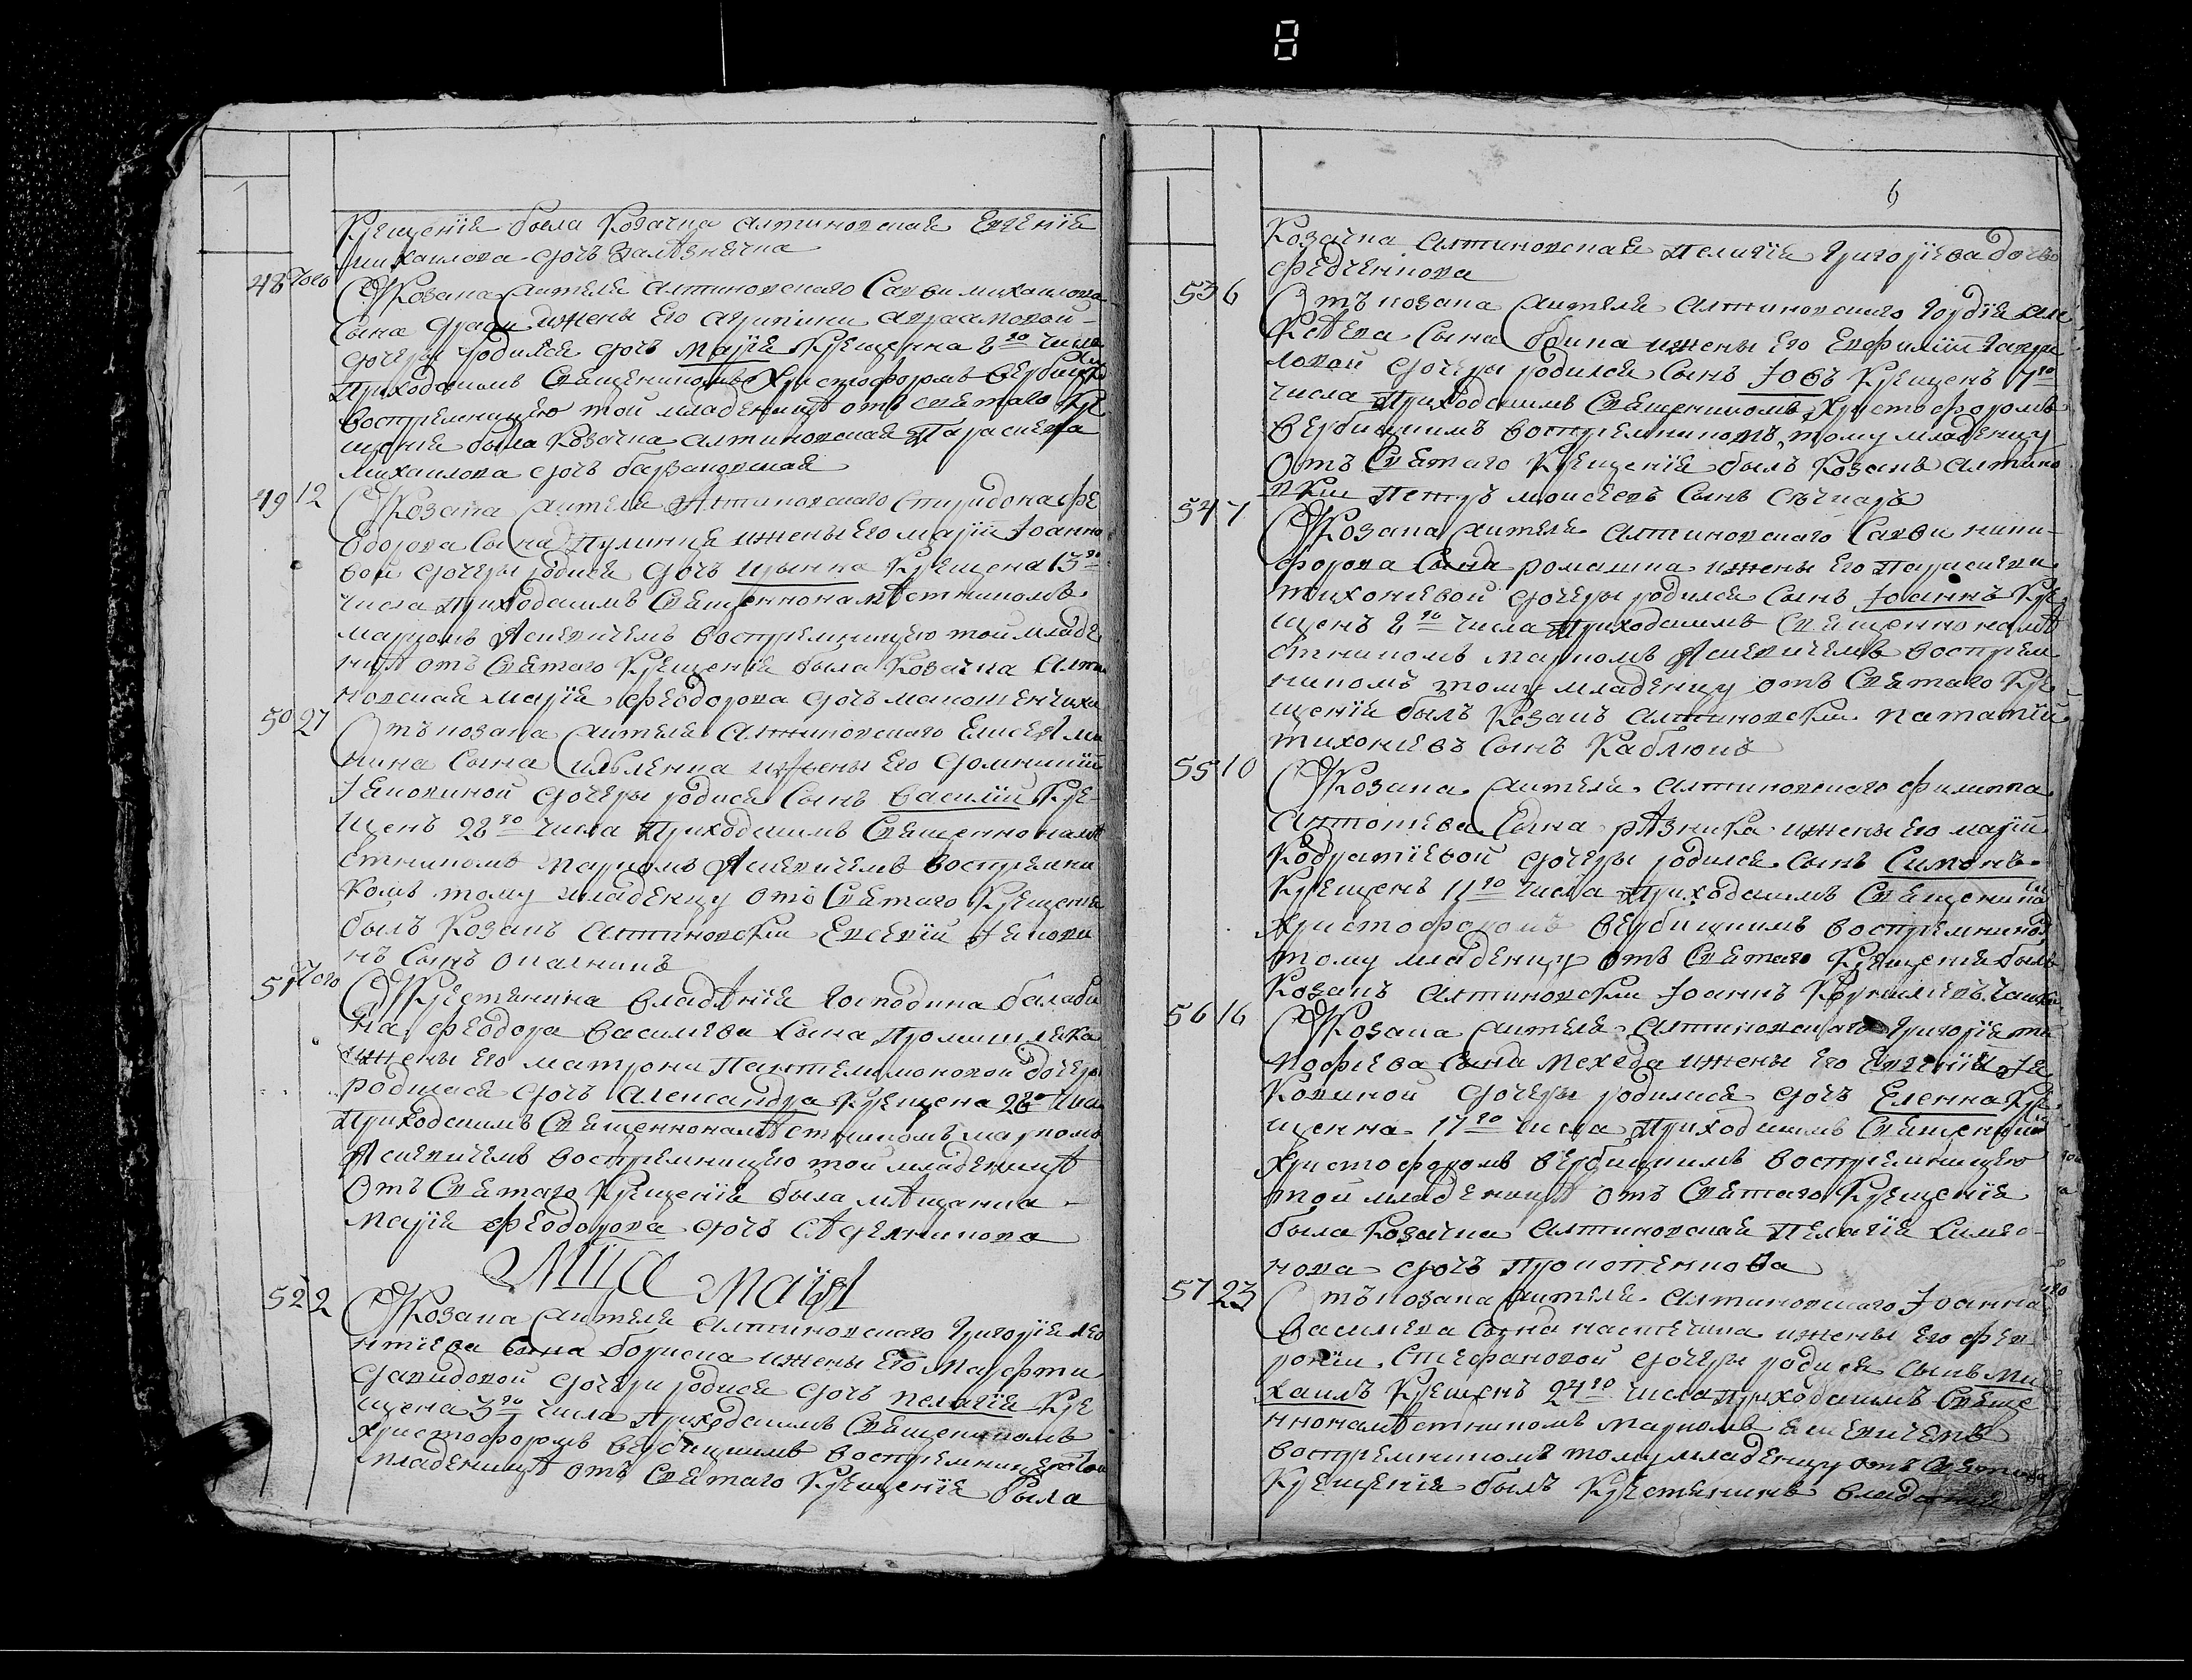 8
Крещенїя была козачка алтиновская Евгенїя
михаилова дочъ Залѣзнячка
48 Того У козака жителя алтиновского Саввы михаилова
сына жены его агрипини авраамовой
дочеры родилася дочъ Марїя крещенна 8го числа
приходскимъ священникомъ Христофоромъ Вербицким
восприемницею той младеницѣ отъ святаго кре
щенїя была козачка алтиновская Параскева
михаилова дочъ
49 12 У козака жителя алтиновского Спиридона фе
одорова сына Пулинца и жены его марїи Іоанно
вой дочеры родися дочъ крещена 13го
числа приходскимъ священнонамѣстникомъ
маркомъ Ясиевичемъ восприемницею той младе
ницѣ отъ святаго крещенїя была козачка алти
новская марїя феодорова дочъ
50 27 Отъ козака жителя алтиновского Елисея ми
нина сына и жены его домникїи
Іаковиной дочеры родися сынъ василїи кре
щенъ 28го числа приходскимъ священнонамѣ
стникомъ маркомъ Ясиевичемъ восприемни
комъ тому младенцу отъ святаго крещенїя
былъ козакъ алтиновскїи Евсевїи Іакови
нъ сынъ
51 Того У крестянина владѣнїя господина балаби
на феодора василиева сына
и жены его матрони Пантелимоновой дочеры
родилася дочъ александра крещена 28го числа
приходскимъ священнонамѣстникомъ маркомъ
Ясиевичемъ восприемницею той младеницѣ
отъ святаго крещенїя была мѣщанка
марїя феодорова дочъ
Мца маїя
52 2 У козака жителя алтиновского григорїя лео
нтїева сына бориска и жены его марфти
давидовой дочери родися дочъ пелагїя кре
щена 3го числа приходскимъ священникомъ
Христофоромъ Вербицкимъ восприемницею той
младеницѣ отъ святаго крещенїя была
6
козачка алтиновская пелагїя григорїева дочь
федченкова
53 6 Отъ козака жителя алтиновского гордїя але
ксѣева сына и жены его Евфимїи гаври
ловой дочеры родилея сынъ Іовъ крещенъ 7го
числа приходскимъ священникомъ Христофоромъ
Вербицкимъ восприемникомъ тому младенцу
отъ святаго крещенїя былъ козакъ алтино
вскїи Петръ моисеевъ сынъ
54 7 У козака жителя алтиновского Саввы ники
форова сына ромашка и жены его параскеви
тихонїевой дочеры родился сынъ Іоаннъ кре
щенъ 8го числа приходскимъ священнонамѣ
стникомъ маркомъ Ясиевичемъ восприем
никомъ тому младенцу отъ святаго кре
щенїя былъ козакъ алтиновскїи
тихонїевъ сынъ Каблюкъ
55 10 У козака жителя алтиновского филиппа
антонїева сына рѣзника и жены его марїи
кодратїевой дочеры родился сынъ Симонъ
крещенъ 11го числа приходскимъ священником
Христофоромъ Вербицкимъ восприемником
тому младенцу отъ святаго крещенїя былъ
козакъ алтиновскїи Іоаннъ
56 16 У козака жителя алтиновского григорїя ти
мофїева сына мехеда и жены его Евгенїи Іа
ковиной дочеры родилися дочъ Еленна кре
щенна 17го числа приходскимъ священником
Христофоромъ Вербицкимъ восприемницею
той младеницѣ отъ святаго крещенїя
была козачка алтиновская пелагїя симео
нова дочъ
57 23 Отъ козака жителя алтиновского Іоанна
василиева сына и жены его фев
ронїи стефановой дочеры родися сынъ ми
хаилъ крещенъ 24го числа приходскимъ свяще
ннонамѣстникомъ маркомъ Ясиевичемъ
восприемникомъ тому младенцу отъ святаго
крещенїя былъ крестянинъ владѣнїя